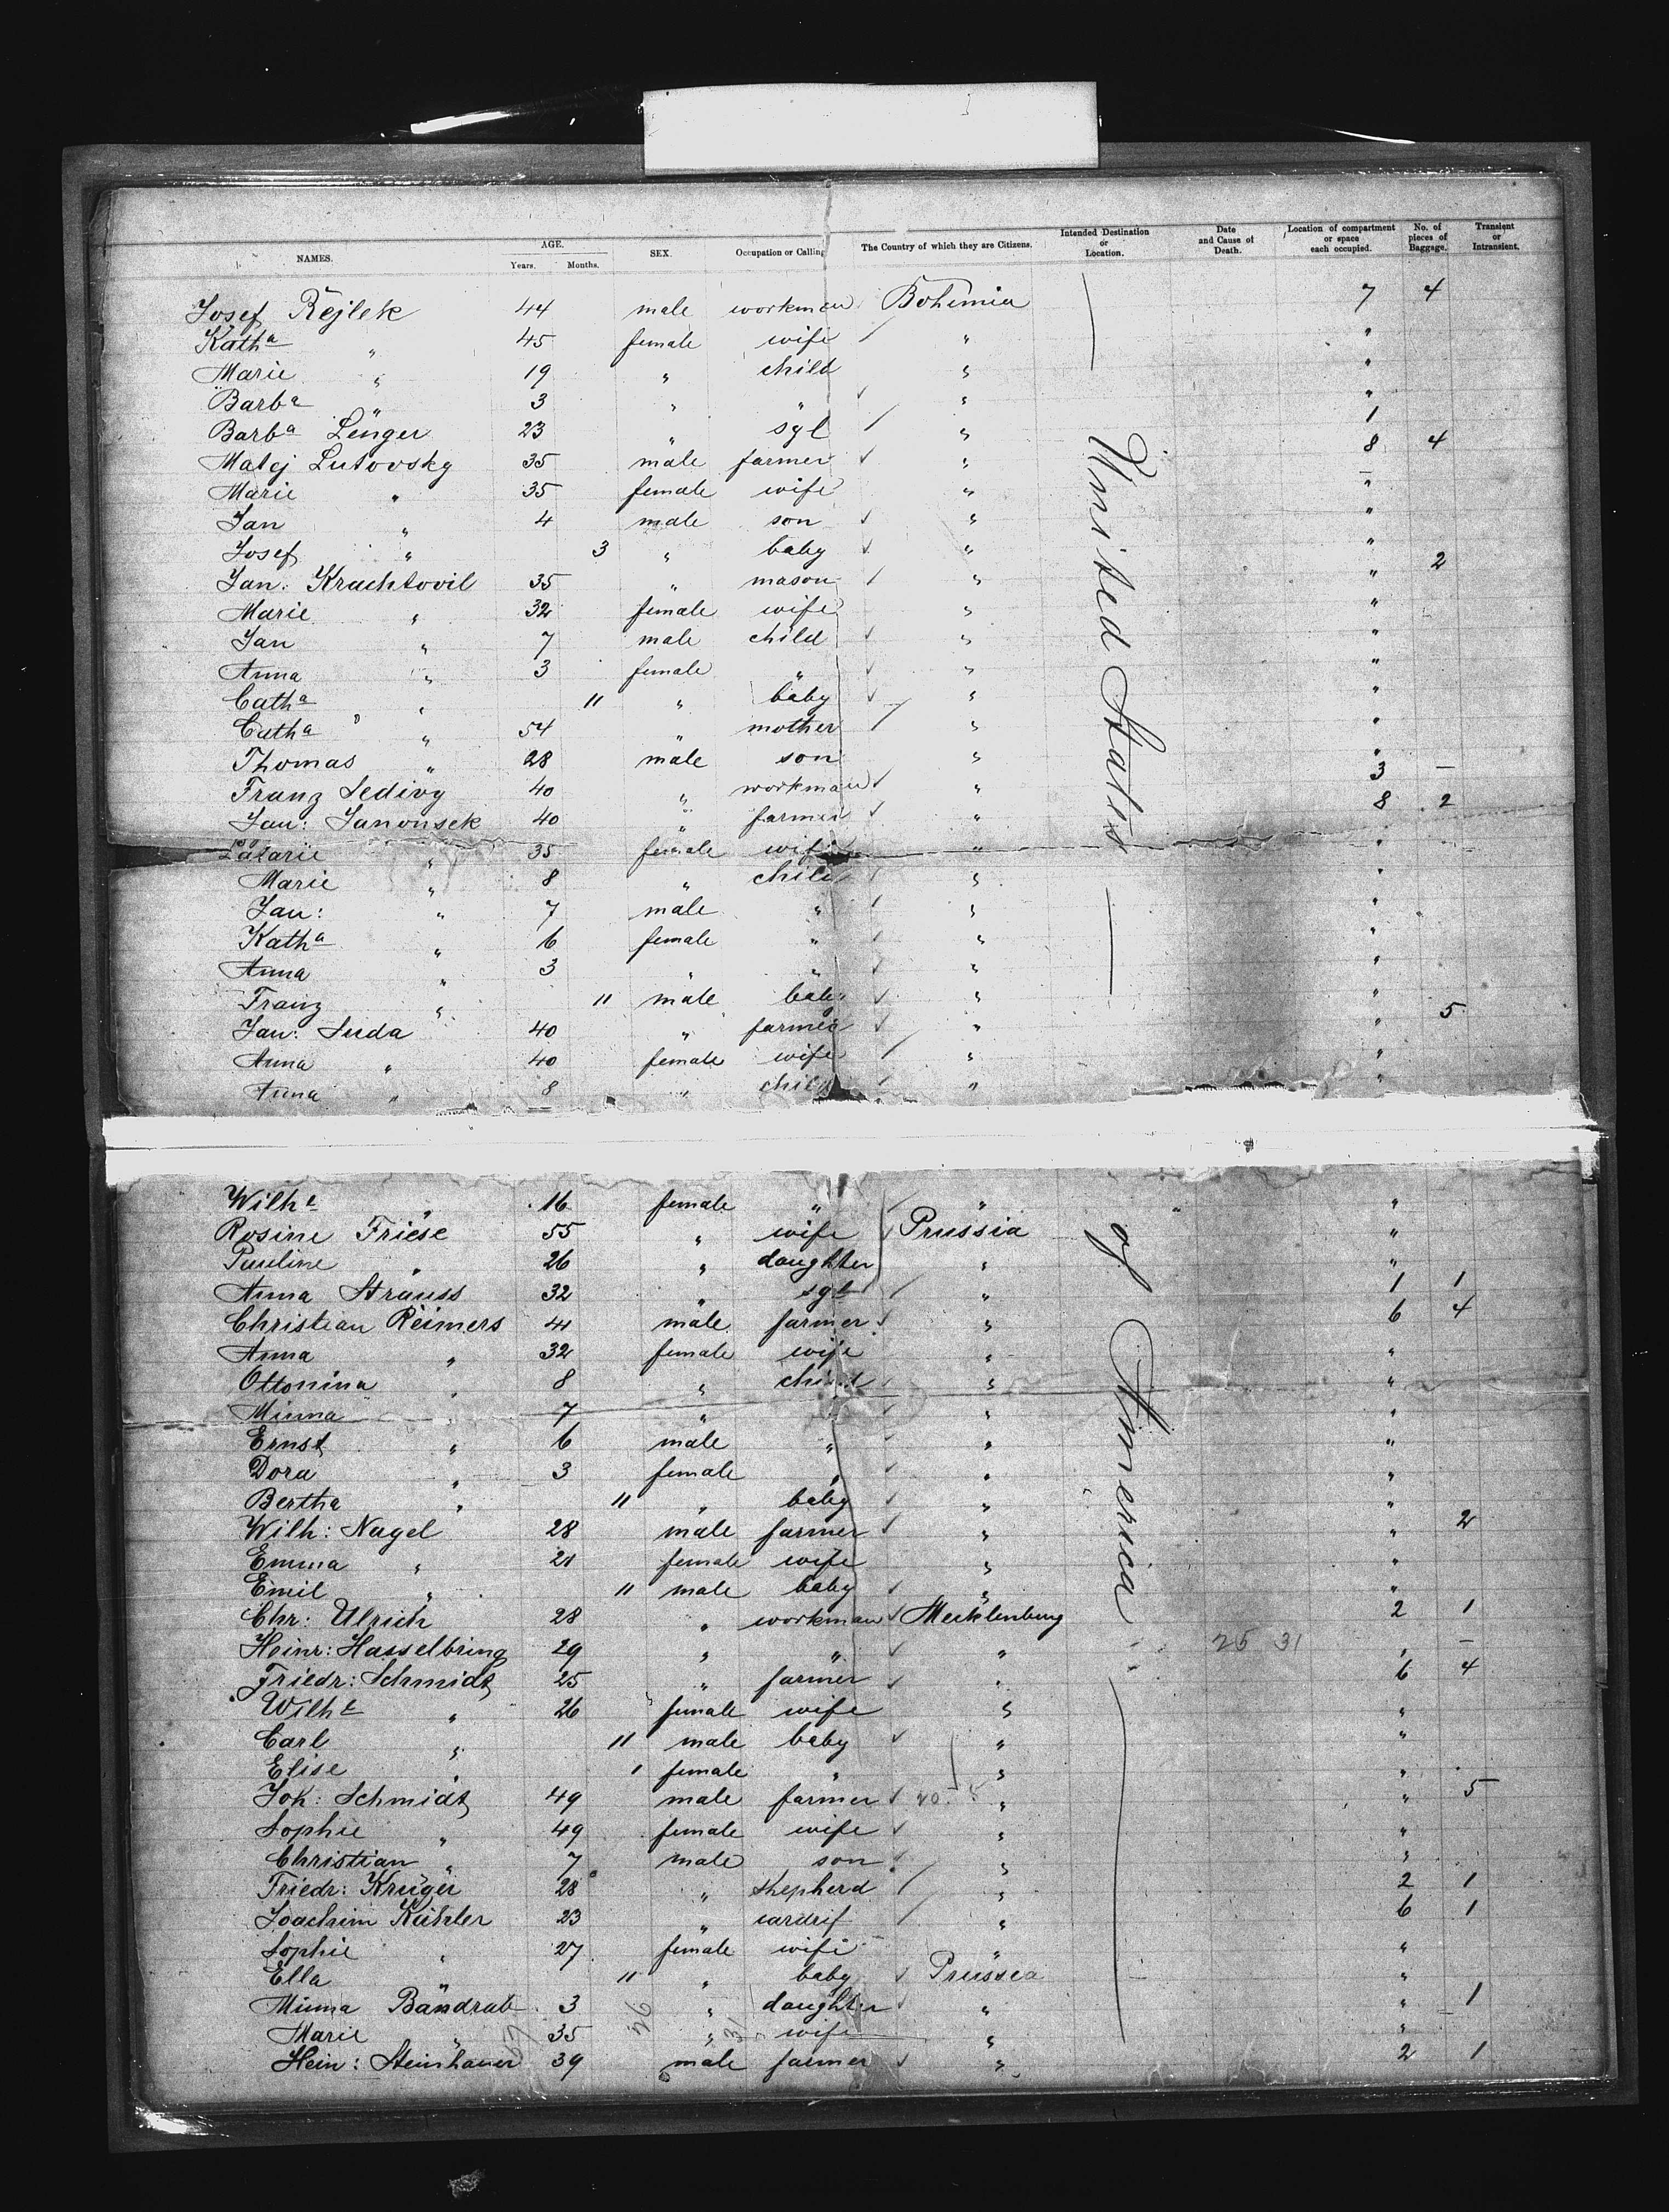 NAMES. AGE. Years. Months. SEX. Occupation or Calling The Country of which they are Citizens. Intended Destination or Location. Date and Cause of Death. Location of compartment or space each occupied. No. of pieces of Baggage. Transient or Intransient.
Josef Rejlek 44 male workman Bohemia 7 4
Kath a " 45 female wife " "
Marie " 19 " child " "
Barb a 3 " " " "
Barb a Lenger 23 " sgl " 1
Matej Lutovsky 35 male farmer " 8 4
Marie " 35 female wife " "
Jan " 4 male son " "
Josef " 3 " baby " "
Jan: Krachtovil 35 " mason " " 2
Marie " 32 female wife " "
Jan " 7 male child " "
Anna " 3 female " " "
Cath a " 11 " baby " "
Cath a " 54 " mother " "
Thomas " 28 male son " "
Franz Sedivy 40 " workman " 3 –
Jan: Janousek 40 " farmer " 8 2
" 35 female wife " "
Marie " 8 " child " "
Jan: " 7 male " " "
Kath a " 6 female " " "
Anna " 3 " " " "
Franz " 11 male baby " "
Jan: Suda 40 " farmer " " 5
Anna " 40 female wife " "
Anna " 8 " child " "
United States
Wilh e " 16 female " " "
Rosine Friese 55 " wife Prussia "
Pauline " 26 " daughter " "
Anna Strauss 32 " sgl " 1 1
Christian Reimers 41 male farmer " 6 4
Anna " 32 female wife " "
Ottonina " 8 " child " "
Minna " 7 " " " "
Ernst " 6 male " " "
Dora " 3 female " " "
Bertha " 11 " baby " "
Wilh: Nagel 28 male farmer " " 2
Emma " 21 female wife " "
Emil " 11 male baby " "
Chr: Ulrich 28 " workman Mecklenburg 2 1
Heinr: Hasselbring 29 " " " 25 31 " –
Friedr: Schmidt 25 " farmer " 6 4
Wilh e " 26 female wife " "
Carl " 11 male baby " "
Elise " 1 female " " "
Joh: Schmidt 49 male farmer " " 5
Sophie " 49 female wife " "
Christian " 7 male son " "
Friedr: Krüger 28 " shepherd " 2 1
Joachim 23 " " 6 1
Sophie " 27 female wife " "
Ella " 11 " baby Prussia "
Minna 3 " daughter " " 1
Marie " 35 " wife " "
Hein: Steinhauer 39 male farmer " 2 1
of America